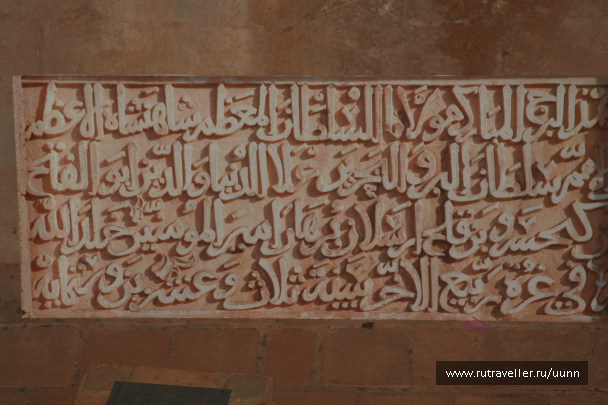 البرج المبارك مولانا السلطان المعظم شاهنشاه الاعظم
سلطان البر و البحرين علا الدنيا و الدين ابو الفتح
كيخسرو بن قلج ارسلان برهان امير المومنين خلد الله
في غرة ربيع الاخر سنة ثلاث و عشرين و ستمايه
www.rutraveller.ru/uunn